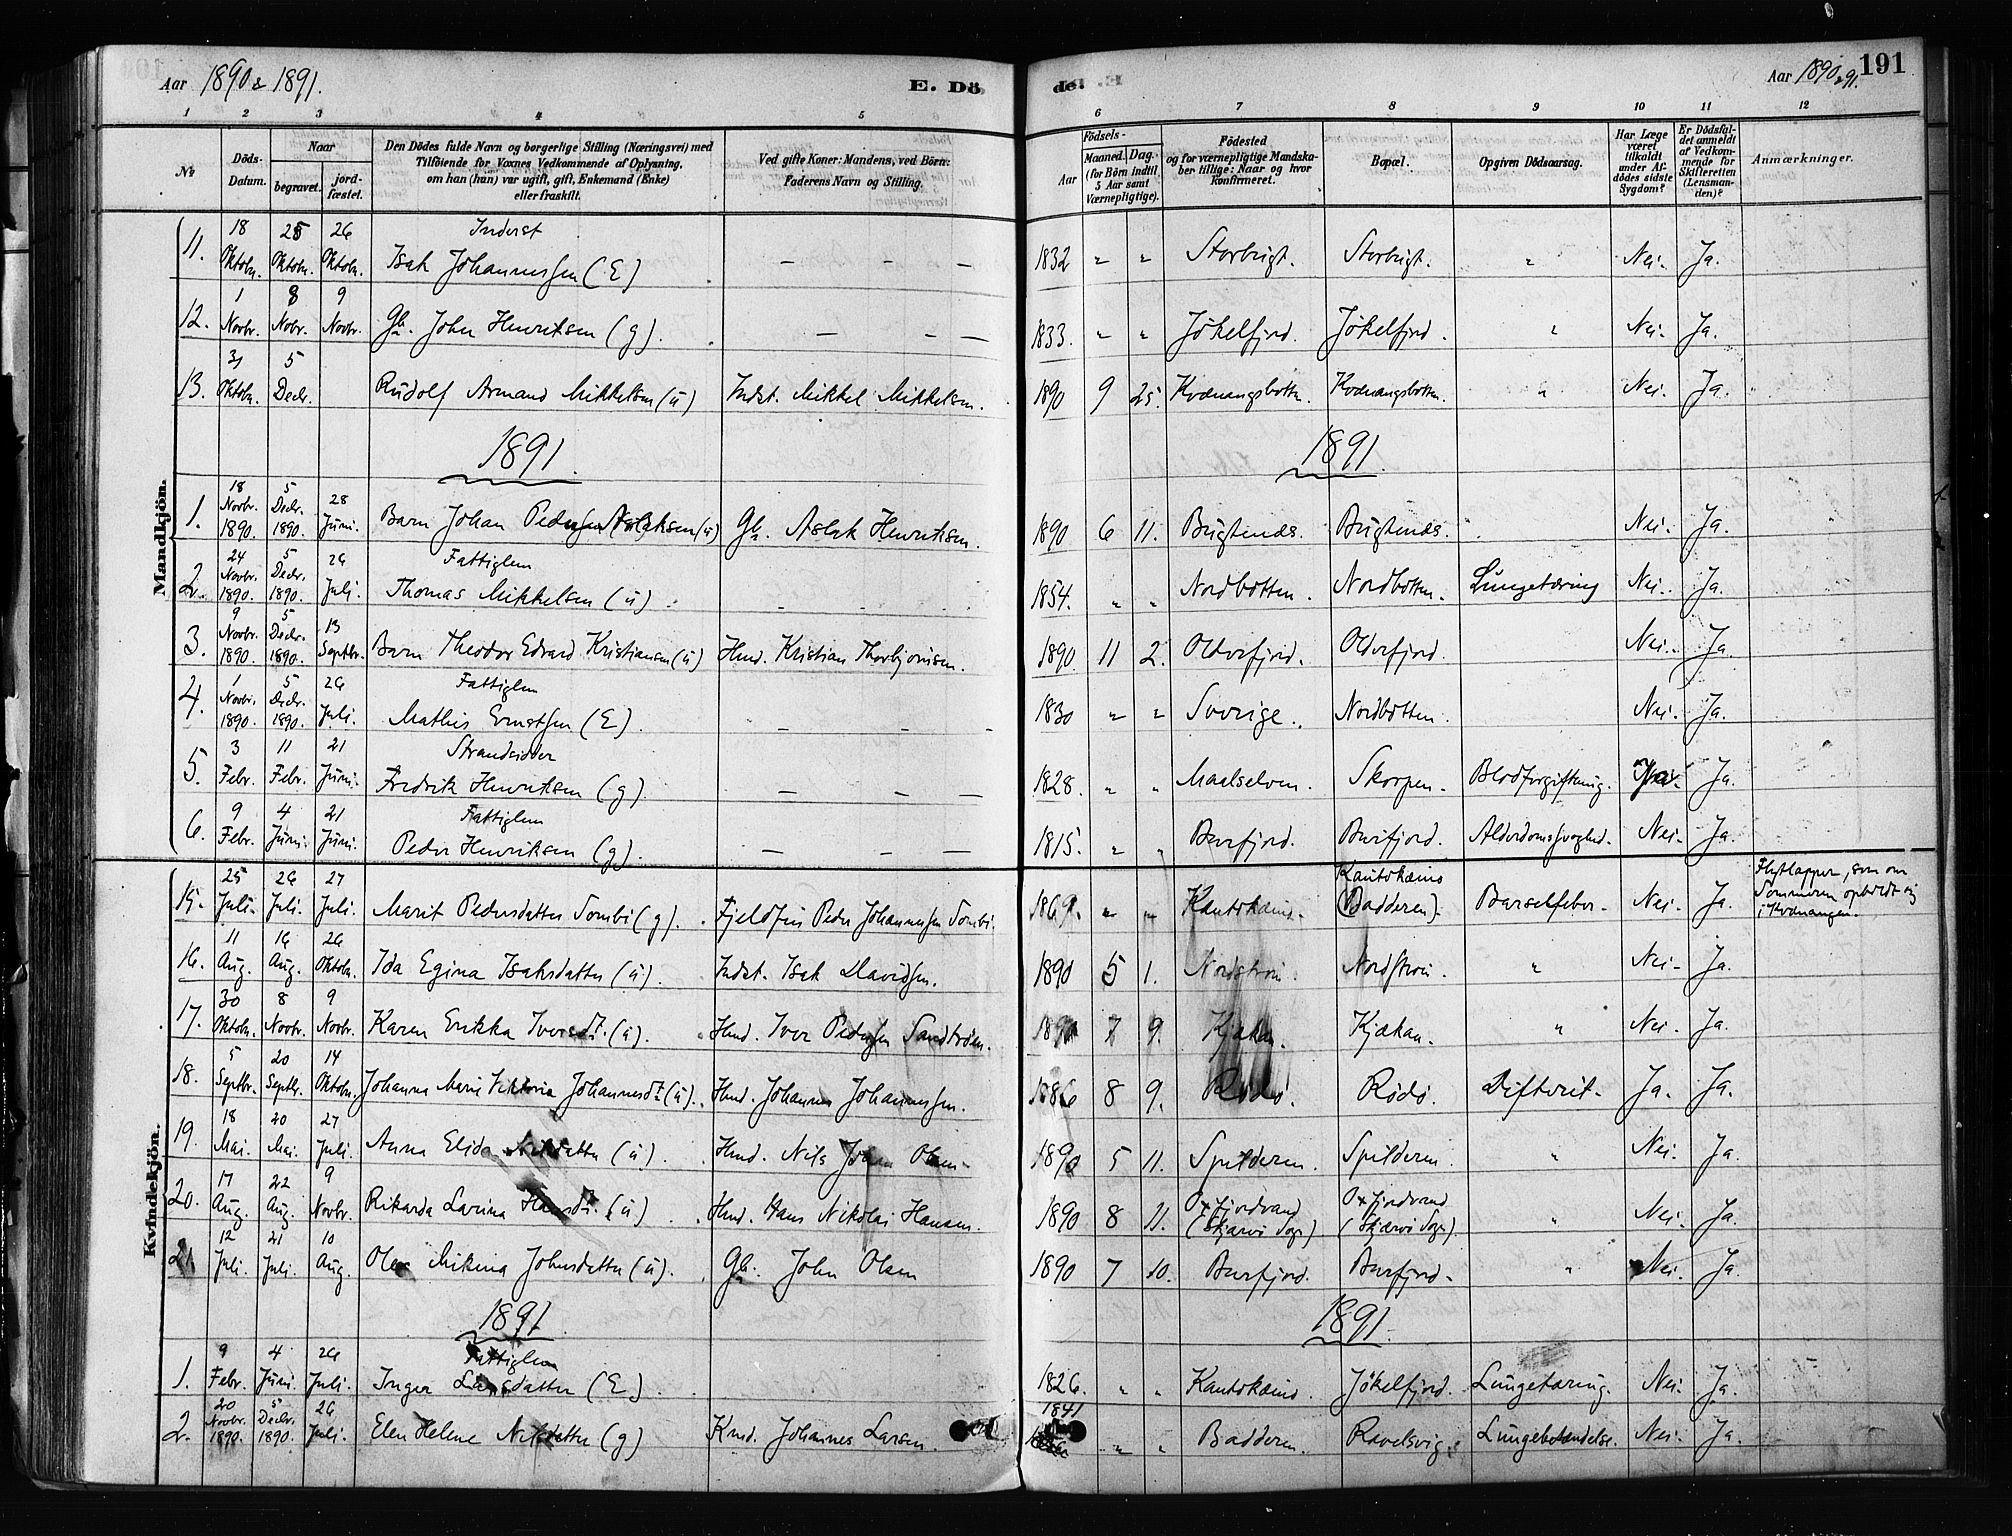 Aar 1890 & 1891. E. Dö de. Aar 1890 & 91. 191
1 2 3 4 5 6 7 8 9 10 11 12
No
Döds-Datum.
Naar
begravet.
jord-fæstet.
Den Dödes fulde Navn og borgerlige Stilling (Næringsvei) med
Tilföiende for Voxnes Vedkommende af Oplysning,
om han (hun) var ugift, gift, Enkemand (Enke)
eller fraskilt.
Ved gifte Koner: Mandens, ved Börn:
Faderens Navn og Stilling.
Födsels-
Aar
Maaned. Dag.
(for Börn indtil
5 Aar samt
Værnepligtige).
Födested
og for værnepligtige Mandska-
ber tillige: Naar og hvor
Konfirmeret.
Bopæl.
Opgiven Dödsaarsag.
Har Læge
været
tilkaldt
under Af-
dödes sidste
Sygdom?
Er Dödsfal-
det anmeldt
af Vedkom-
mende for
Skifteretten
(Lensman-
den)?
Anmærkninger.
Mandkjön.
11. 18 Oktobr. 25 Oktobr. 26 Oktobr. Inderst Isak Johannessen (E) — — — 1832 " " Storbugt. Storbugt. " Nei. Ja.
12. 1 Novbr. 8 Nobr. 9 Novbr. Gb. John Henriksen (g). — — — 1833. " " Jökelfjord. Jökelfjord. " Nei. Ja.
13. 31 Oktobr. 5 Decbr. Rudolf Armand Mikkelsen (u) Indst. Mikkel Mikkelsen. 1890 9 25. Kvænangsbotten. Kvænangsbotten. " Nei. Ja.
1891. 1891.
1. 18 Novbr. 1890. 5 Decbr. 1890. 28 Juni. Barn Johan Pedersen Aslaksen (u) Gb. Aslak Henriksen. 1890 6 11. Bugtenes. Bugtenes. Nei. Ja.
2. 24 Novbr. 1890. 5 Decbr. 1890. 26 Juli. Fattiglem Thomas Mikkelsen (u). 1854. " " Nordbotten. Nordbotten. Lungetæring Nei. Ja.
3. 9 Novbr. 1890. 5 Decbr. 1890. 13 Septbr. Barn Theodor Edvard Kristiansen (u) Hmd. Kristian Thorbjörnsen. 1890 11 2. Olderfjord. Olderfjord. Nei. Ja.
4. 1 Novbr. 1890. 5 Decbr. 1890. 26 Juli. Fattiglem Mathis Ernstsen (E). — — — 1830 " " Sverige. Nordbotten. Nei. Ja.
5. 3 Febr. 11 Febr. 21 Juni. Strandsidder Fredrik Henriksen (g). — — — 1828. " " Maalselven. Skorpen. Blodforgiftning. Ja. Ja.
6. 9 Febr. 4 Juni. 21 Juni. Fattiglem Peder Henriksen (g). — — — 1815. " " Burfjord. Burfjord. Alderdomssvaghed. Nei. Ja.
Kvindekjön.
15. 25 Juli. 26 Juli. 27 Juli. Marit Pedersdatter Sombi (g). Fjeldfin Peder Johannessen Sombi. 1869. " " Kautokeino. Kautokeino (Badderen). Barselfeber. Nei. Ja. Flytlapper, som om Sommeren opholdt sig i Kvænangen.
16. 11 Aug. 16 Aug. 26 Oktobr. Ida Egina Isaksdatter (u). Indst. Isak Davidsen. 1890 5 1. Nordström. Nordström. " Nei. Ja.
17. 30 Oktobr. 8 Novbr. 9 Novbr. Karen Erikka Iversdt. (u). Hmd. Iver Pedersen Sandström. 1890 7 9. Kjækan. Kjækan. " Nei. Ja.
18. 5 Septbr. 20 Septbr. 14 Oktobr. Johanna Marie Viktoria Johannesdt. (u). Hmd. Johannes Johannessen. 1886 8 9. Rödö. Rödö. Difterit. Ja. Ja.
19. 18 Mai. 20 Mai. 27 Juli. Anna Elida Nilsdatter (u). Hmd. Nils Johan Olsen. 1890 5 11. Spilderen. Spilderen. " Nei. Ja.
20. 17 Aug. 22 Aug. 9 Novbr. Rikarda Larina Hansdt. (u). Hmd. Hans Nikolai Hansen. 1890 8 11. Oxfjordvand (Skjervö Sogn) Oxfjordvand (Skjervö Sogn) " Nei. Ja.
21. 12 Juli. 21 Juli. 10 Aug. Olea Mikina Johnsdatter (u). Gb. John Olsen 1890 7 10. Burfjord. Burfjord. " Nei. Ja.
1891. 1891.
1. 9 Febr. 4 Juni. 26 Juli. Fattiglem Inger Larsdatter (E). 1826. " " Kautokeino. Jökelfjord. Lungetæring. Nei. Ja.
2. 20 Novbr. 1890. 5 Decbr. 1890. 26 Juli. Elen Helene Nilsdatter (g) Kmd. Johannes Larsen. 1841 " " Badderen. Ravelsvig. Lungebetændelse. Nei. Ja.